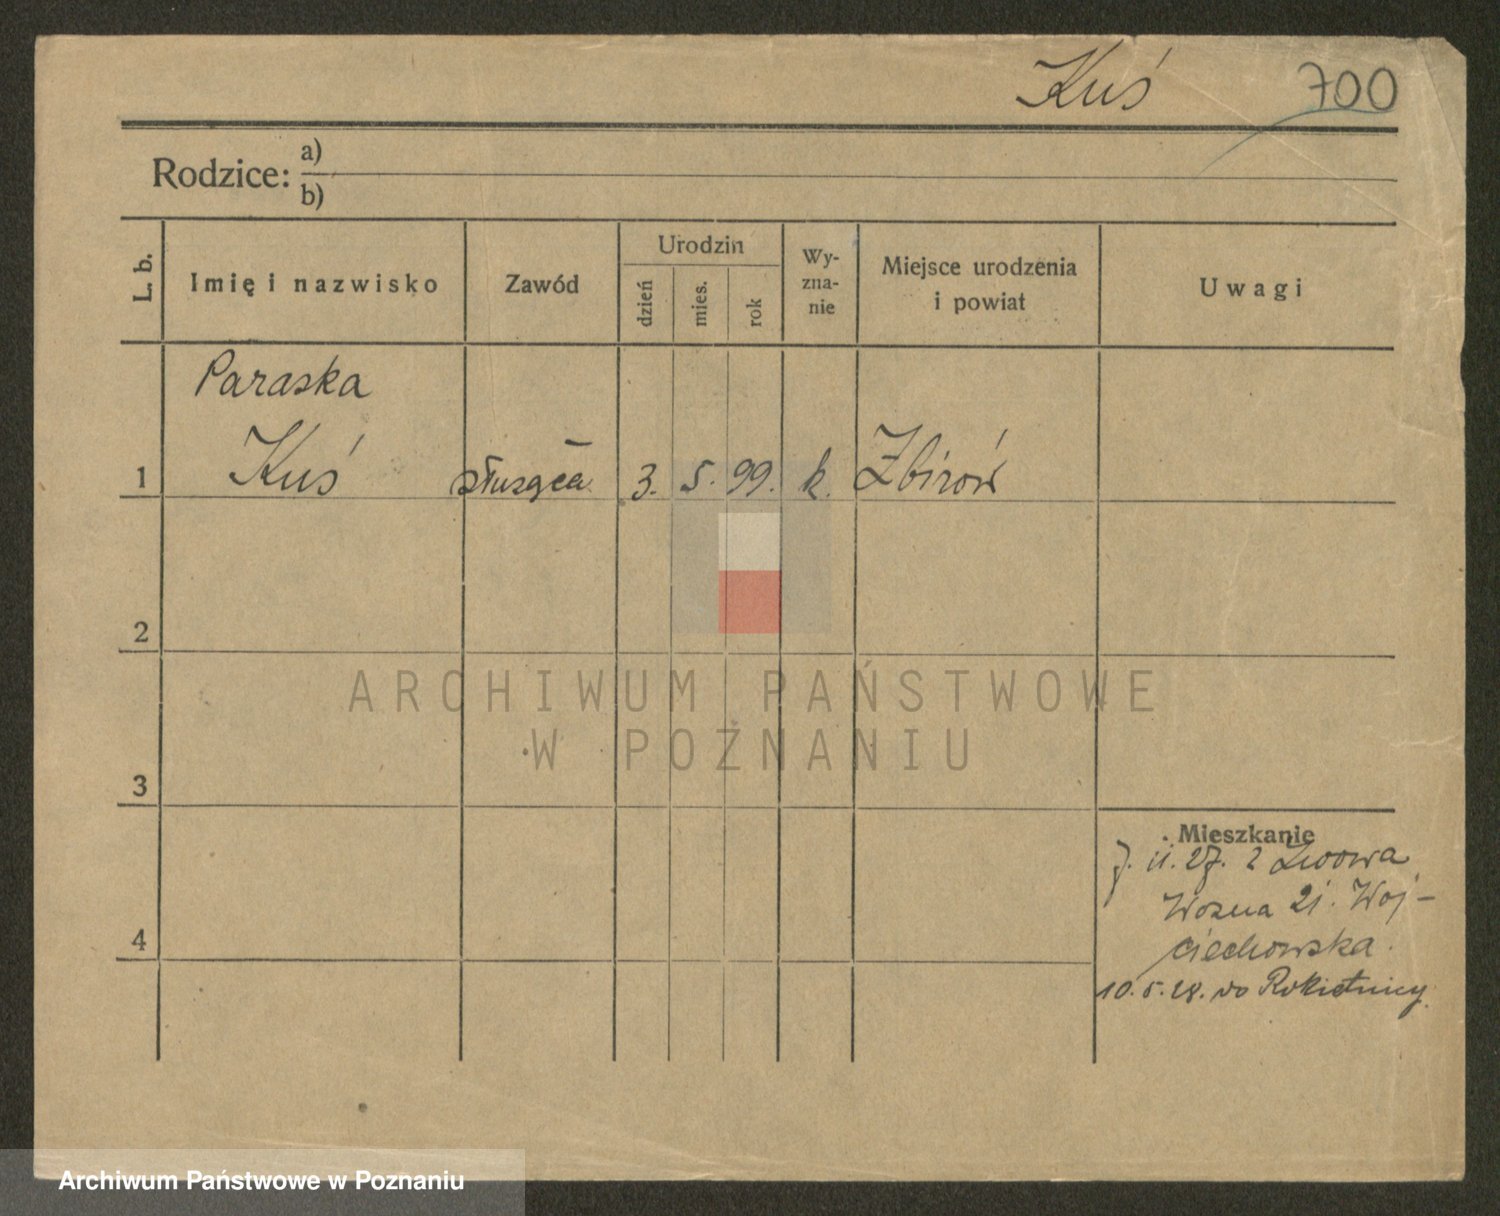 Kuś 700
Rodzice: a)
b)
L. b. Imię i nazwisko Zawód Urodzin dzień mies. rok Wy-
zna-
nie Miejsce urodzenia
i powiat Uwagi
Paraska
1 Kuś służąca 3. 5. 99. k. Zbirów
2
3
4
Mieszkanie
7. 11. 27. z Lwowa
Wozna 21. Woj-
ciechowska.
10. 5. 28. do Rokietnicy.
ARCHIWUM PAŃSTWOWE
W POZNANIU
Archiwum Państwowe w Poznaniu